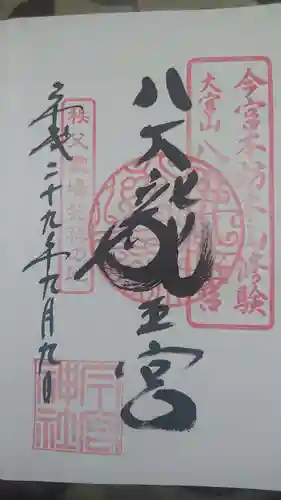 今宮坊本山修験
大宮山八
八大龍王宮
秩父霊場発祥の地
平成二十九年九月九日
今宮神社